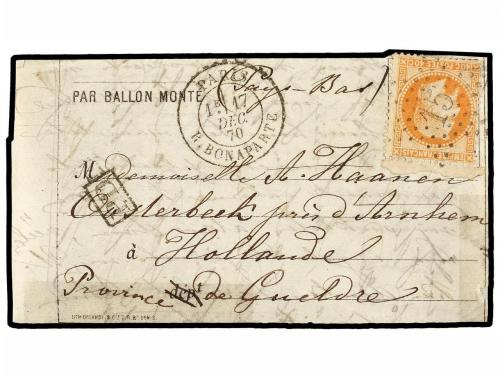 PAR BALLON MONTÉ
(Pays-Bas)
PARIS
17
DEC.
70
R. BONAPARTE
15
EMPIRE FRANÇAIS
Mademoiselle A. Haanen
Oosterbeek près d'Arnhem
à Hollande
Province dépt de Gueldre